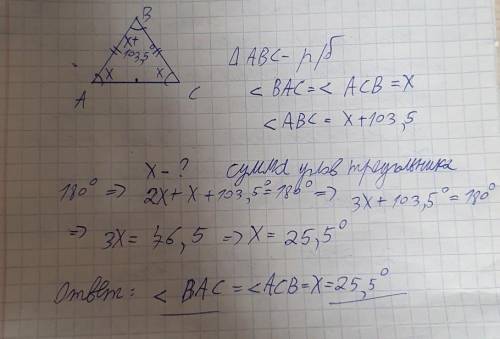 B
x+
103,5°
x x
A C
Δ ABC - р/б
< BAC = < ACB = X
< ABC = X + 103,5
X - ? сумма углов треугольника
180° => 2X + X + 103,5° = 180° => 3X + 103,5° = 180°
=> 3X = 76,5 => X = 25,5°
Ответ: < BAC = < ACB = X = 25,5°